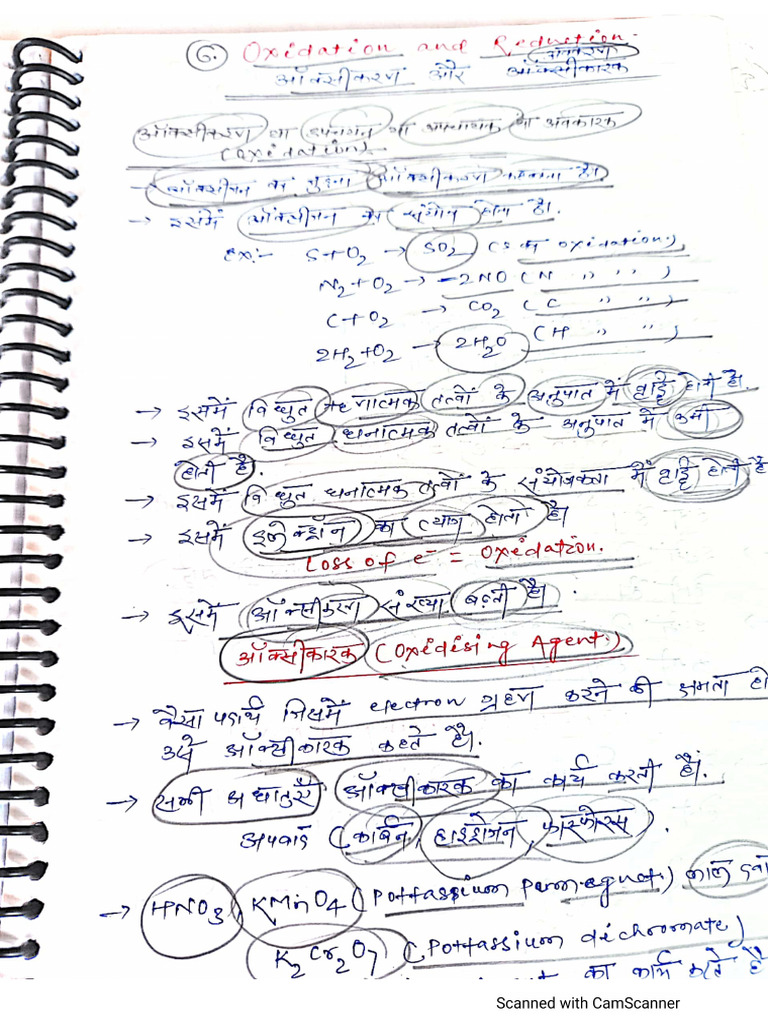 6. Oxidation and Reduction.
अवकरण
ऑक्सीकरण और ऑक्सीकारक
ऑक्सीकरण या उपचयन या अपचायक या अवकारक
(Oxidation) :-
→ ऑक्सीजन का जुड़ना ऑक्सीकरण कहलाता है।
→ इसमें ऑक्सीजन का संयोग होता है।
Ex:- S+O2 → SO2 (S का oxidation)
N2+O2 → 2NO (N " " ")
C+O2 → CO2 (C " " ")
2H2+O2 → 2H2O (H " " ")
→ इसमें विधुत ऋणात्मक तत्वों के अनुपात में वृद्धि होती है.
→ इसमें विधुत धनात्मक तत्वों के अनुपात में कमी
होती है.
→ इसमें विधुत धनात्मक तत्वों के संयोजकता में वृद्धि होती है
→ इसमें इलेक्ट्रॉन का त्याग होता है।
Loss of e⁻ = Oxidation.
→ इसमें ऑक्सीकरण संख्या बढ़ती है।
ऑक्सीकारक (Oxidising Agent:)
→ वैसा पदार्थ जिसमें electron ग्रहण करने की क्षमता हो
उसे ऑक्सीकारक कहते है।
→ सभी अधातुएँ ऑक्सीकारक का कार्य करती है।
अपवाद (कार्बन, हाइड्रोजन, फास्फोरस).
→ HNO3, KMnO4 (Pottassium Permagnet) लाल दवा
K2Cr2O7 (Pottassium dichromate)
का कार्य करते है
Scanned with CamScanner